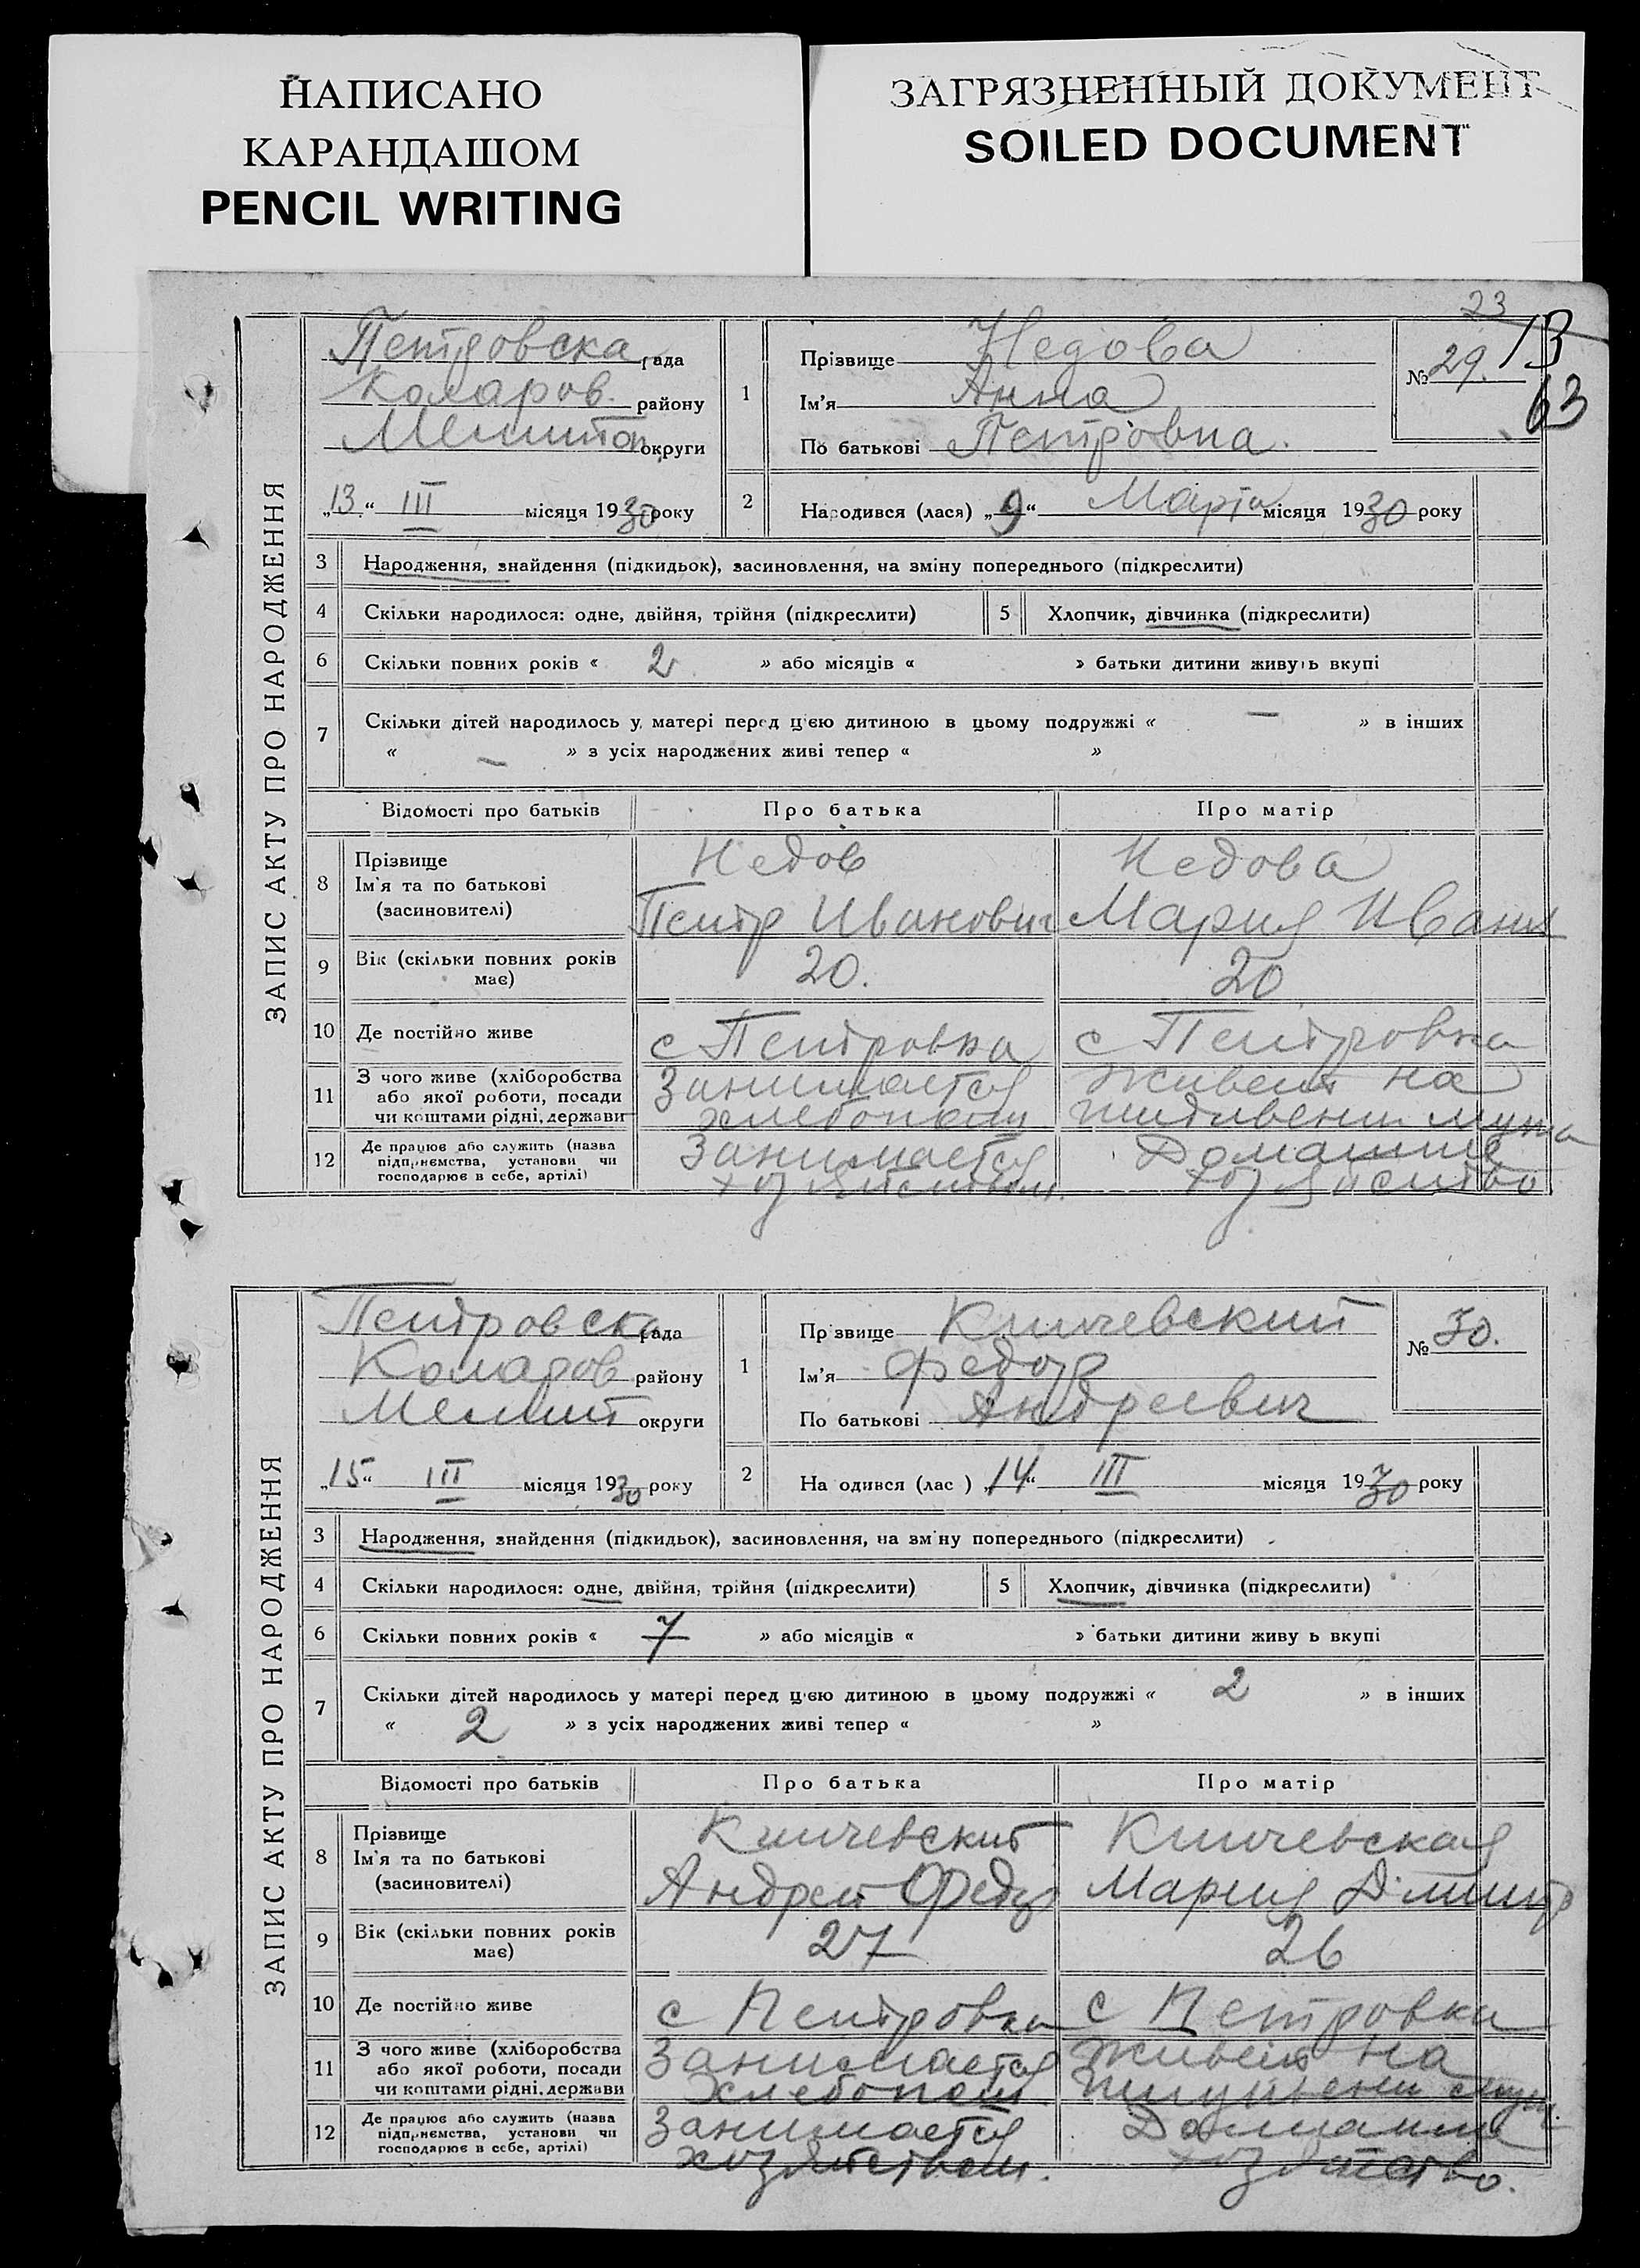 НАПИСАНО
КАРАНДАШОМ
PENCIL WRITING
ЗАГРЯЗНЕННЫЙ ДОКУМЕНТ
SOILED DOCUMENT
23
13
63
ЗАПИС АКТУ ПРО НАРОДЖЕННЯ
Петровска рада
Коларов. району
Мелитоп. округи
„13“ III місяця 1930 року
1
Прізвище Недова
Ім'я Анна
По батькові Петровна.
№ 29.
2 Народився (лася) „9“ Марта місяця 1930 року
3 Народження, знайдення (підкидьок), засиновлення, на зміну попереднього (підкреслити)
4 Скільки народилося: одне, двійня, трійня (підкреслити) 5 Хлопчик, дівчинка (підкреслити)
6 Скільки повних років « 2 » або місяців « » батьки дитини живуть вкупі
7 Скільки дітей народилось у матері перед цією дитиною в цьому подружжі « — » в інших
« — » з усіх народжених живі тепер « »
Відомості про батьків Про батька Про матір
8 Прізвище
Ім'я та по батькові
(засиновителі)
Недов
Петр Иванович
Недова
Мария Иван
9 Вік (скільки повних років
має)
20. 20
10 Де постійно живе с Петровка с Петровка
11 З чого живе (хліборобства
або якої роботи, посади
чи коштами рідні, держави
Занимается
хлебопаш
Живет на
мужа
12 Де працює або служить (назва
підприємства, установи чи
господарює в себе, артілі)
Занимается
хозяйством.
Домашнее
хозяйство
ЗАПИС АКТУ ПРО НАРОДЖЕННЯ
Петровска рада
Коларов району
Мелит округи
„15“ III місяця 1930 року
1
Прізвище Кличевский
Ім'я Федор
По батькові Андреевич
№ 30.
2 Народився (лас ) „14“ III місяця 1930 року
3 Народження, знайдення (підкидьок), засиновлення, на зміну попереднього (підкреслити)
4 Скільки народилося: одне, двійня, трійня (підкреслити) 5 Хлопчик, дівчинка (підкреслити)
6 Скільки повних років « 7 » або місяців « » батьки дитини живу ь вкупі
7 Скільки дітей народилось у матері перед цією дитиною в цьому подружжі « 2 » в інших
« 2 » з усіх народжених живі тепер « »
Відомості про батьків Про батька Про матір
8 Прізвище
Ім'я та по батькові
(засиновителі)
Кличевский
Андрей Федор
Кличевская
Мария Дмитр
9 Вік (скільки повних років
має)
27 26
10 Де постійно живе с Петровка с Петровка
11 З чого живе (хліборобства
або якої роботи, посади
чи коштами рідні, держави
Занимается
хлебопаш.
Живет на
12 Де працює або служить (назва
підприємства, установи чи
господарює в себе, артілі)
Занимается
хозяйством.
Домашнее
хозяйство.